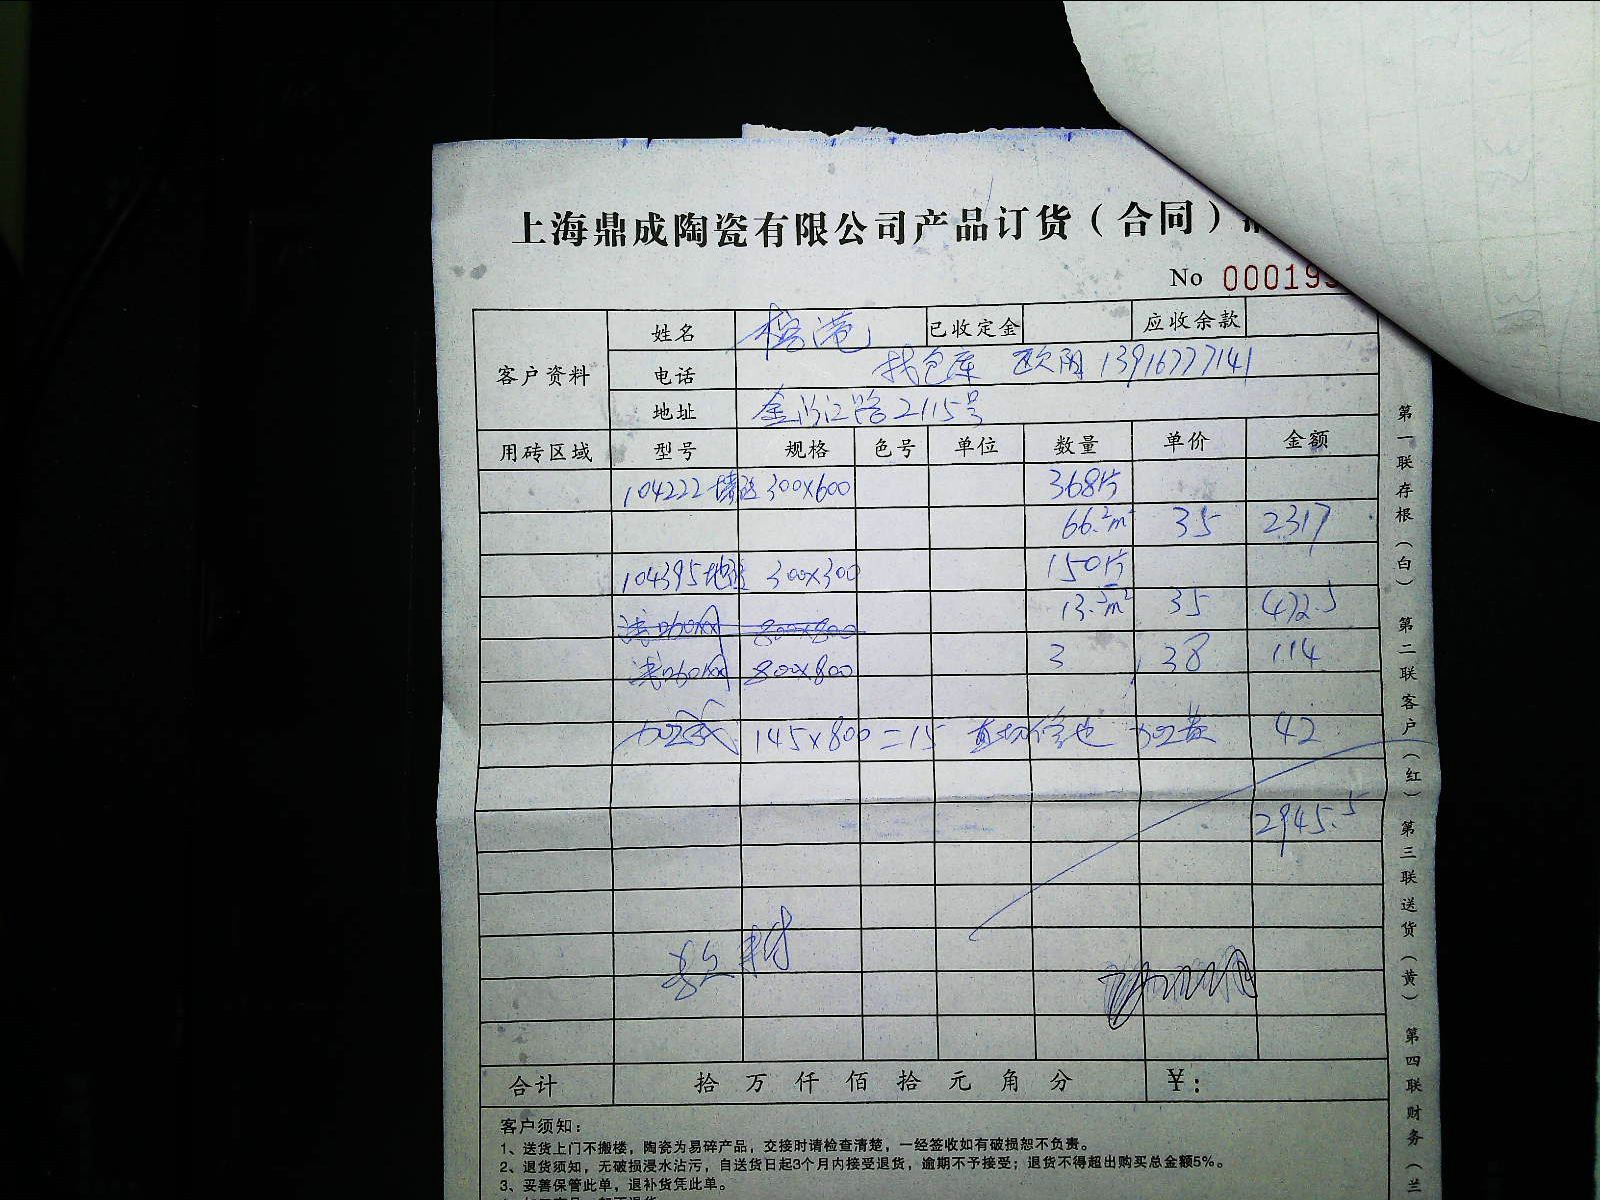 上海鼎成陶瓷有限公司产品订货（合同）
No 00019
客户资料 姓名 已收定金 应收余款
电话 找仓库 欧阳 13916777141
地址 金沙江路2115号
用砖区域 型号 规格 色号 单位 数量 单价 金额
104222墙砖 300×600 368片
66.2m² 35 2317
104395地砖 300×300 150片
13.5m² 35 472.5
800×800
800×800 3 38 114
145×800=15 加工费 42
2945.5
合计 拾 万 仟 佰 拾 元 角 分 ￥：
客户须知：
1、送货上门不搬楼，陶瓷为易碎产品，交接时请检查清楚，一经签收如有破损恕不负责。
2、退货须知，无破损浸水沾污，自送货日起3个月内接受退货，逾期不予接受；退货不得超出购买总金额5%。
3、妥善保管此单，退补货凭此单。
第一联存根（白） 第二联客户（红） 第三联送货（黄） 第四联财务（兰